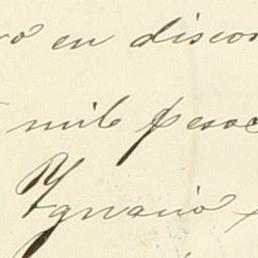 en discor
mil pesos
Ygnacio